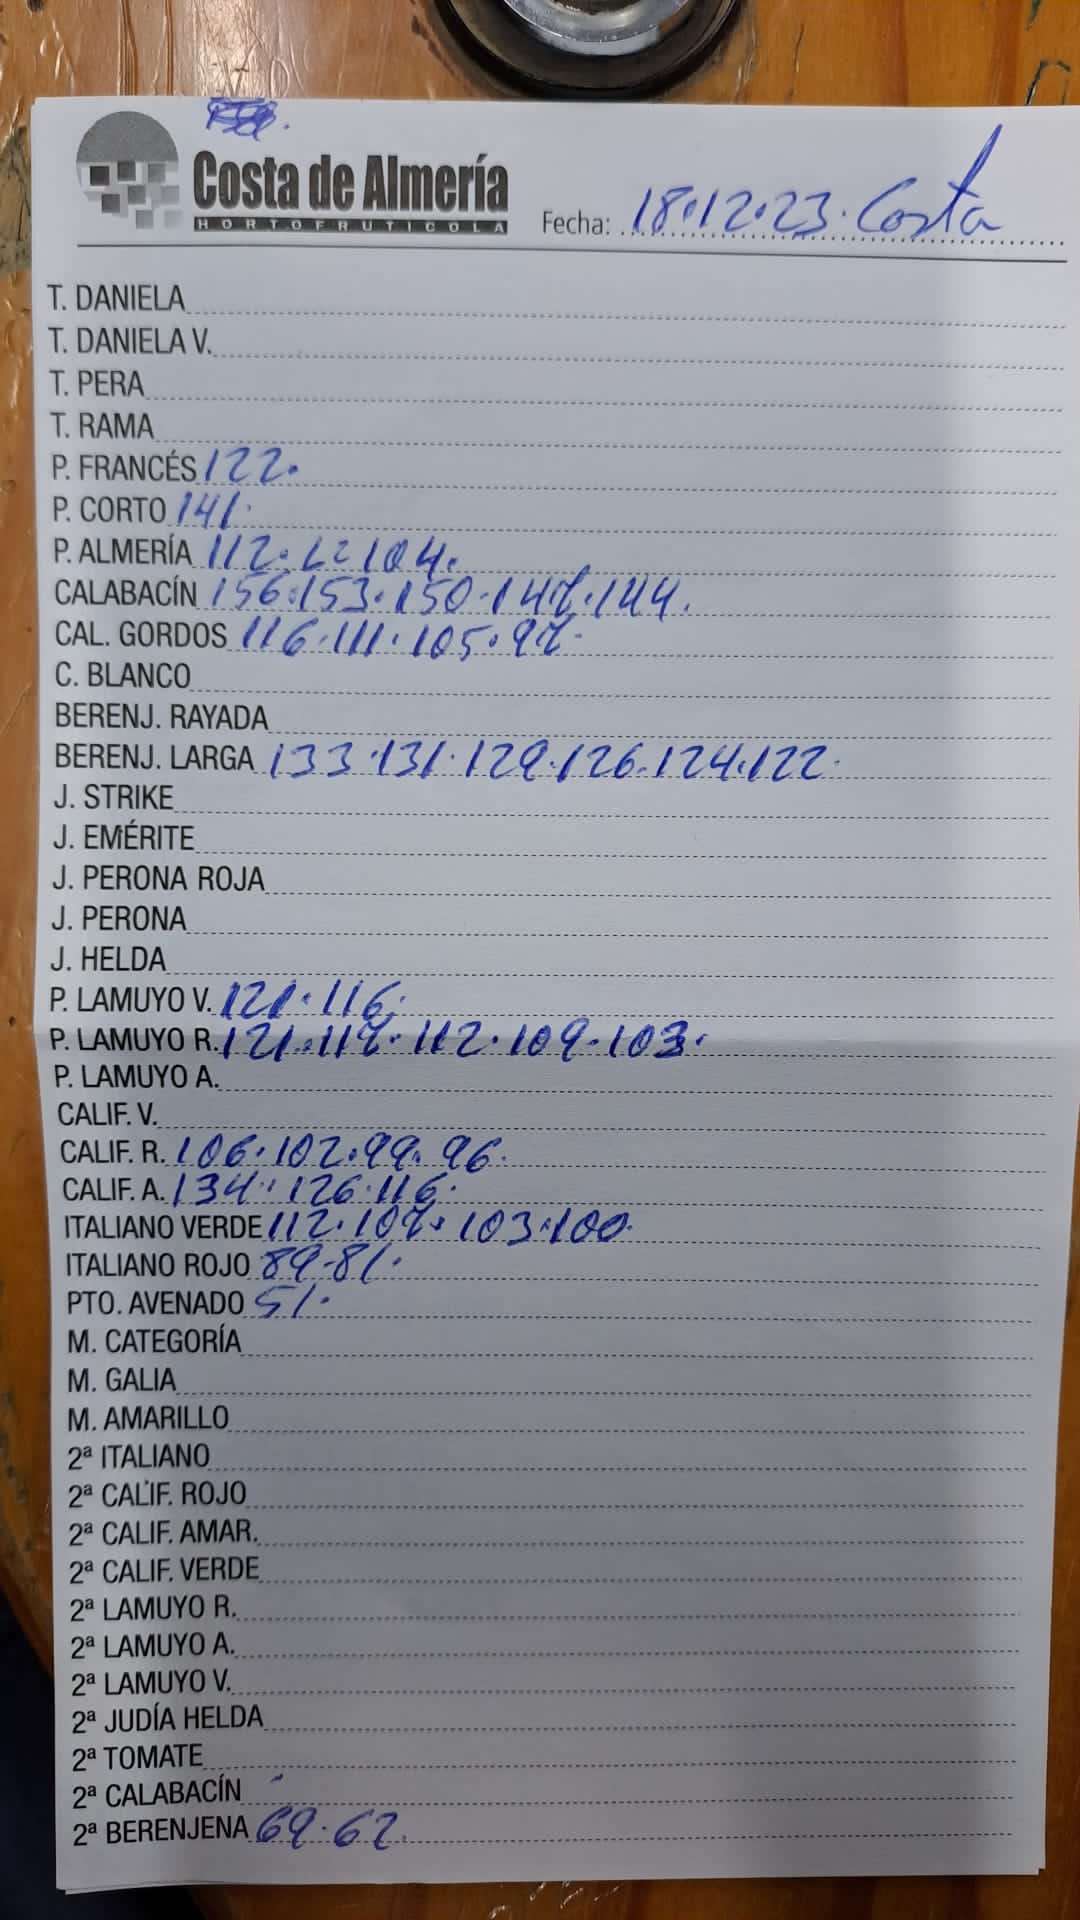 Costa de Almería
HORTOFRUTICOLA
Fecha: 18.12.23. Costa
T. DANIELA
T. DANIELA V.
T. PERA
T. RAMA
P. FRANCÉS 122.
P. CORTO 141.
P. ALMERÍA 112. 104.
CALABACÍN 156.153.150.147.144.
CAL. GORDOS 116.111.105.97.
C. BLANCO
BERENJ. RAYADA
BERENJ. LARGA 133.131.129.126.124.122.
J. STRIKE
J. EMÉRITE
J. PERONA ROJA
J. PERONA
J. HELDA
P. LAMUYO V. 121.116.
P. LAMUYO R. 121.117.112.109.103.
P. LAMUYO A.
CALIF. V.
CALIF. R. 106.102.99.96.
CALIF. A. 134.126.116.
ITALIANO VERDE 112.107.103.100.
ITALIANO ROJO 89-81.
PTO. AVENADO 51.
M. CATEGORÍA
M. GALIA
M. AMARILLO
2ª ITALIANO
2ª CALIF. ROJO
2ª CALIF. AMAR.
2ª CALIF. VERDE
2ª LAMUYO R.
2ª LAMUYO A.
2ª LAMUYO V.
2ª JUDÍA HELDA
2ª TOMATE
2ª CALABACÍN
2ª BERENJENA 69.62.